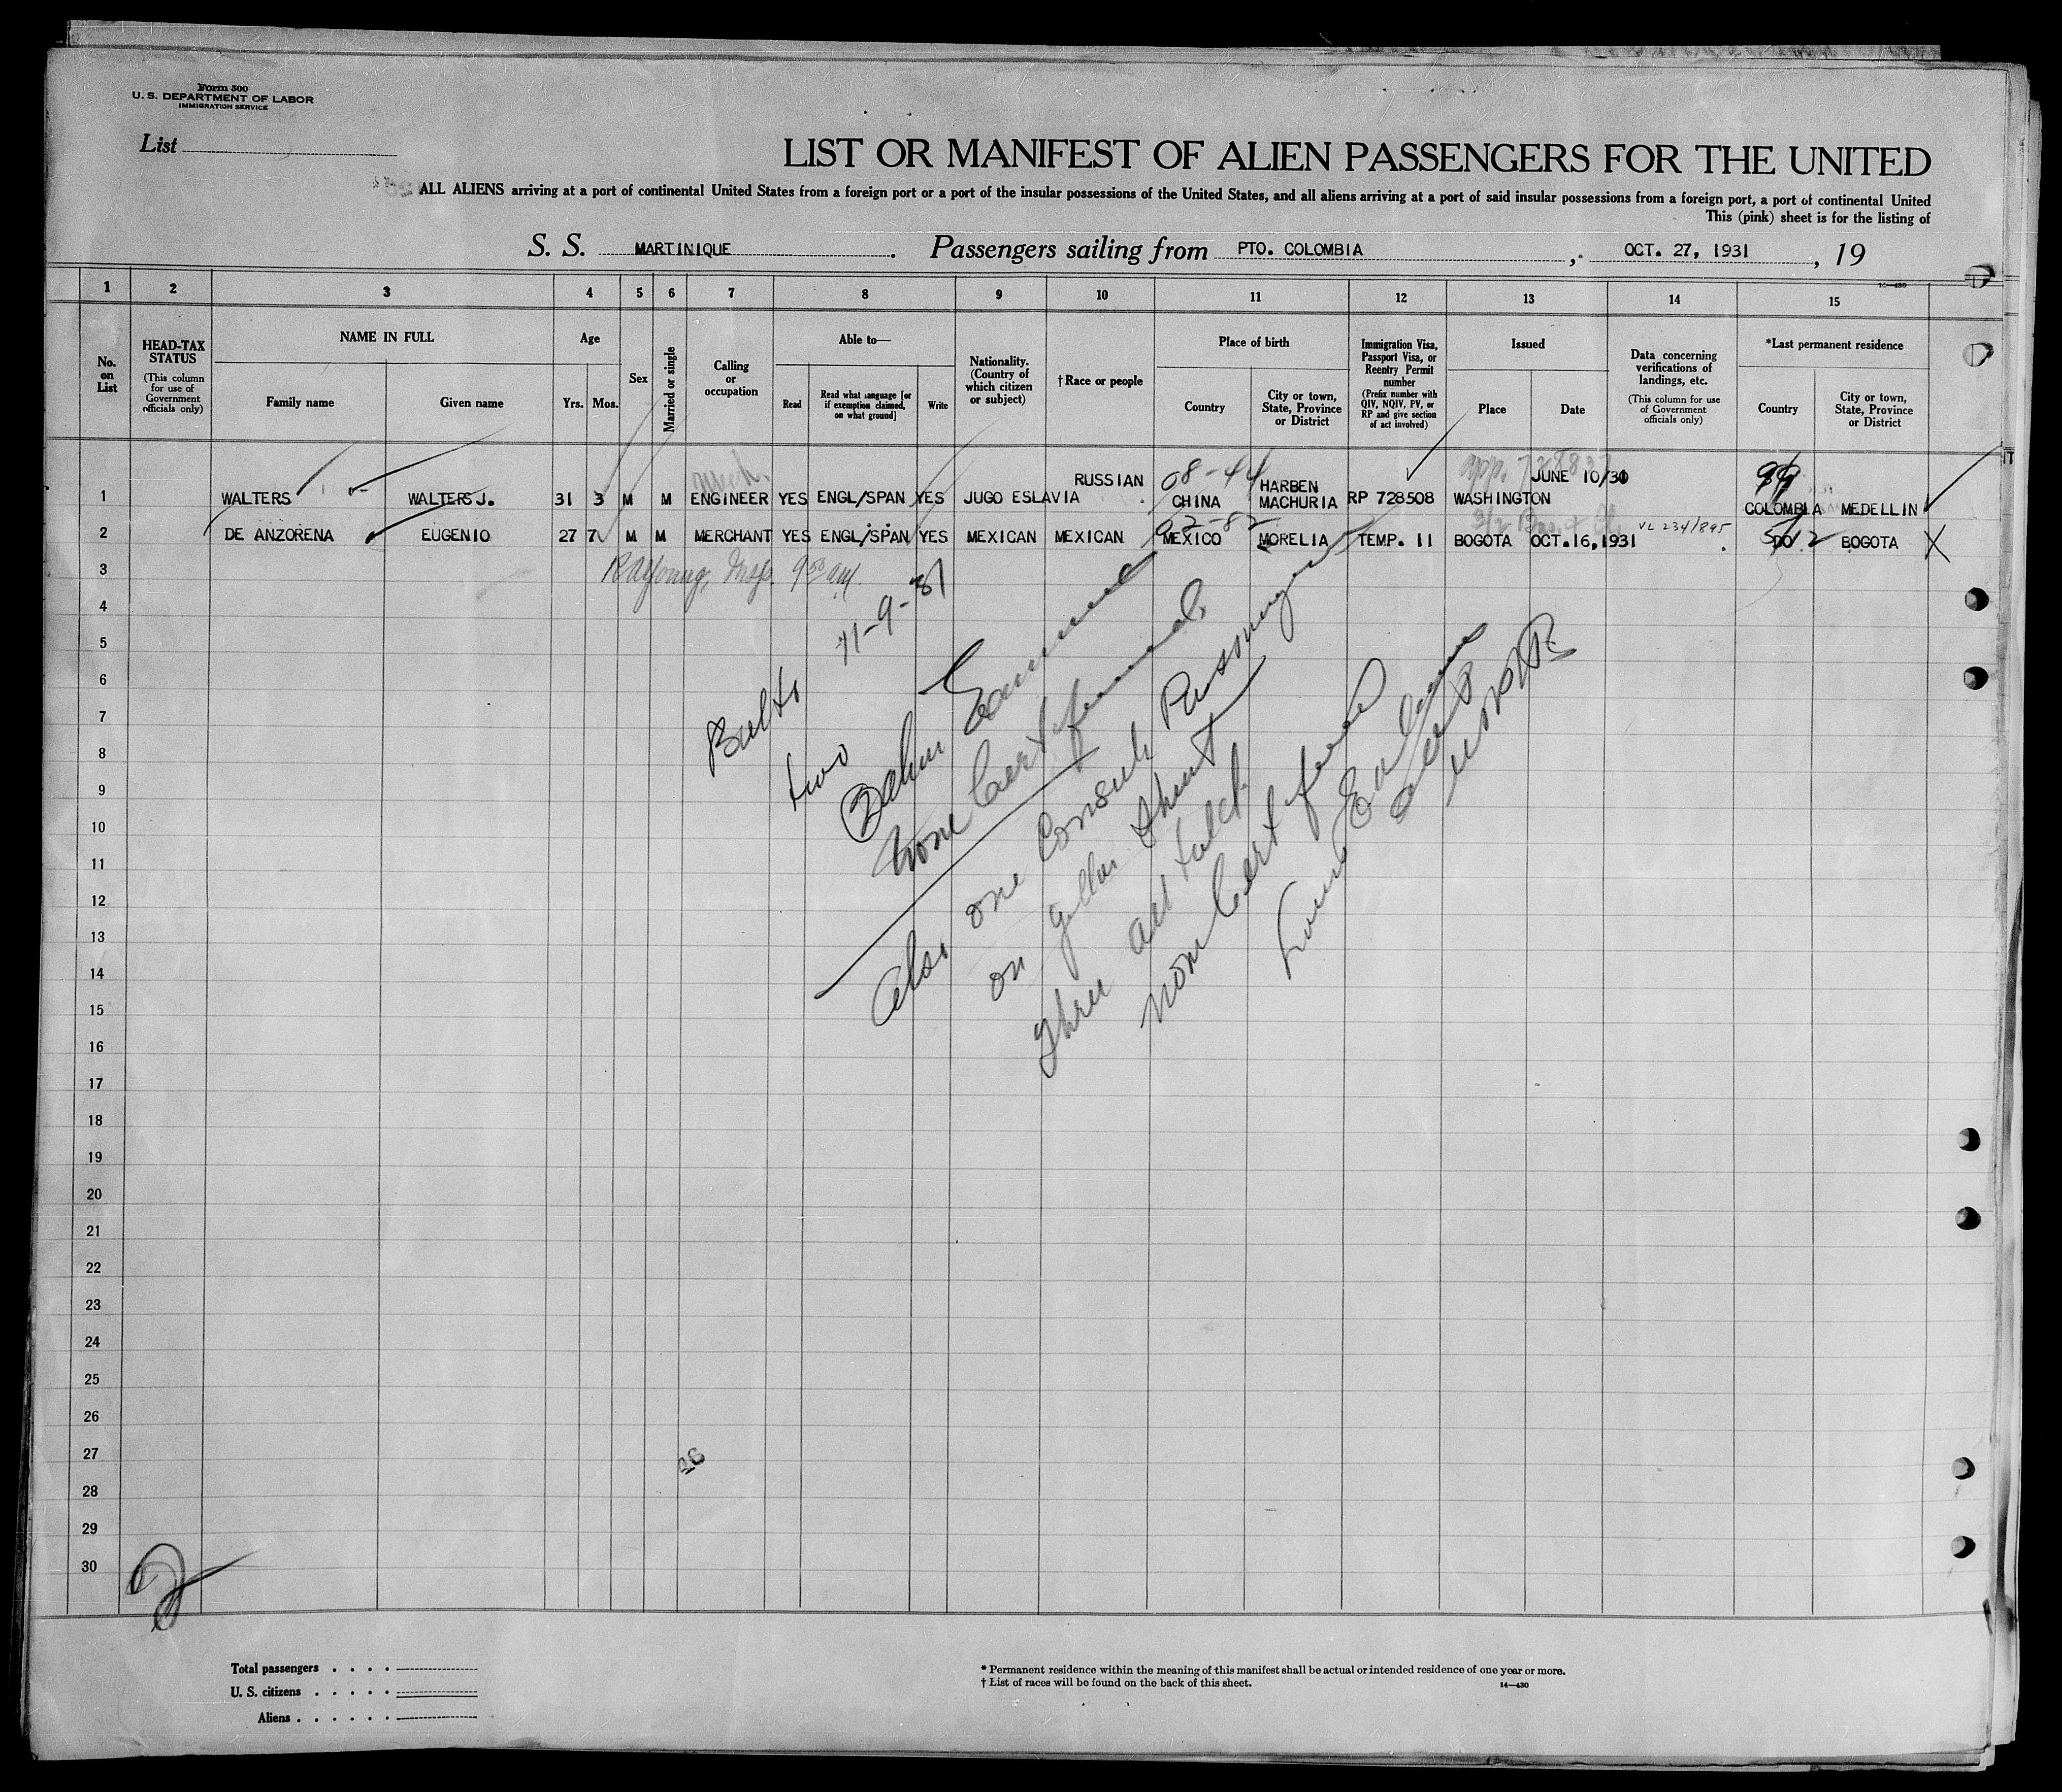 Form 500
U. S. DEPARTMENT OF LABOR
IMMIGRATION SERVICE
List
LIST OR MANIFEST OF ALIEN PASSENGERS FOR THE UNITED
ALL ALIENS arriving at a port of continental United States from a foreign port or a port of the insular possessions of the United States, and all aliens arriving at a port of said insular possessions from a foreign port, a port of continental United
This (pink) sheet is for the listing of
S. S. MARTINIQUE. Passengers sailing from PTO. COLOMBIA, OCT. 27, 1931, 19
14—430
1 2 3 4 5 6 7 8 9 10 11 12 13 14 15
No. on List
HEAD-TAX STATUS (This column for use of Government officials only)
NAME IN FULL Family name Given name
Age Yrs. Mos.
Sex
Married or single
Calling or occupation
Able to— Read Read what language [or if exemption claimed, on what ground] Write
Nationality. (Country of which citizen or subject)
† Race or people
Place of birth Country City or town, State, Province or District
Immigration Visa, Passport Visa, or Reentry Permit number (Prefix number with QIV, NQIV, PV, or RP and give section of act involved)
Issued Place Date
Data concerning verifications of landings, etc. (This column for use of Government officials only)
*Last permanent residence Country City or town, State, Province or District
mech. 08-44 app. 99
1 WALTERS WALTERS J. 31 3 M M ENGINEER YES ENGL/SPAN YES JUGO ESLAVIA RUSSIAN CHINA HARBEN MACHURIA RP 728508 WASHINGTON JUNE 10/30 COLOMBIA MEDELLIN
92-82 VL 234/895
2 DE ANZORENA EUGENIO 27 7 M M MERCHANT YES ENGL/SPAN YES MEXICAN MEXICAN MEXICO MORELIA TEMP. 11 BOGOTA OCT. 16, 1931 DO BOGOTA X
3 RA Young, Insp. 9 50 am
4
5 11-9-31
6
7
8
9 two
10
11
12
13 one
14 on
15 Also
16 Three
17
18
19
20
21
22
23
24
25
26
27 26
28
29
30
2
Total passengers
U. S. citizens
Aliens
* Permanent residence within the meaning of this manifest shall be actual or intended residence of one year or more.
† List of races will be found on the back of this sheet.
14—430